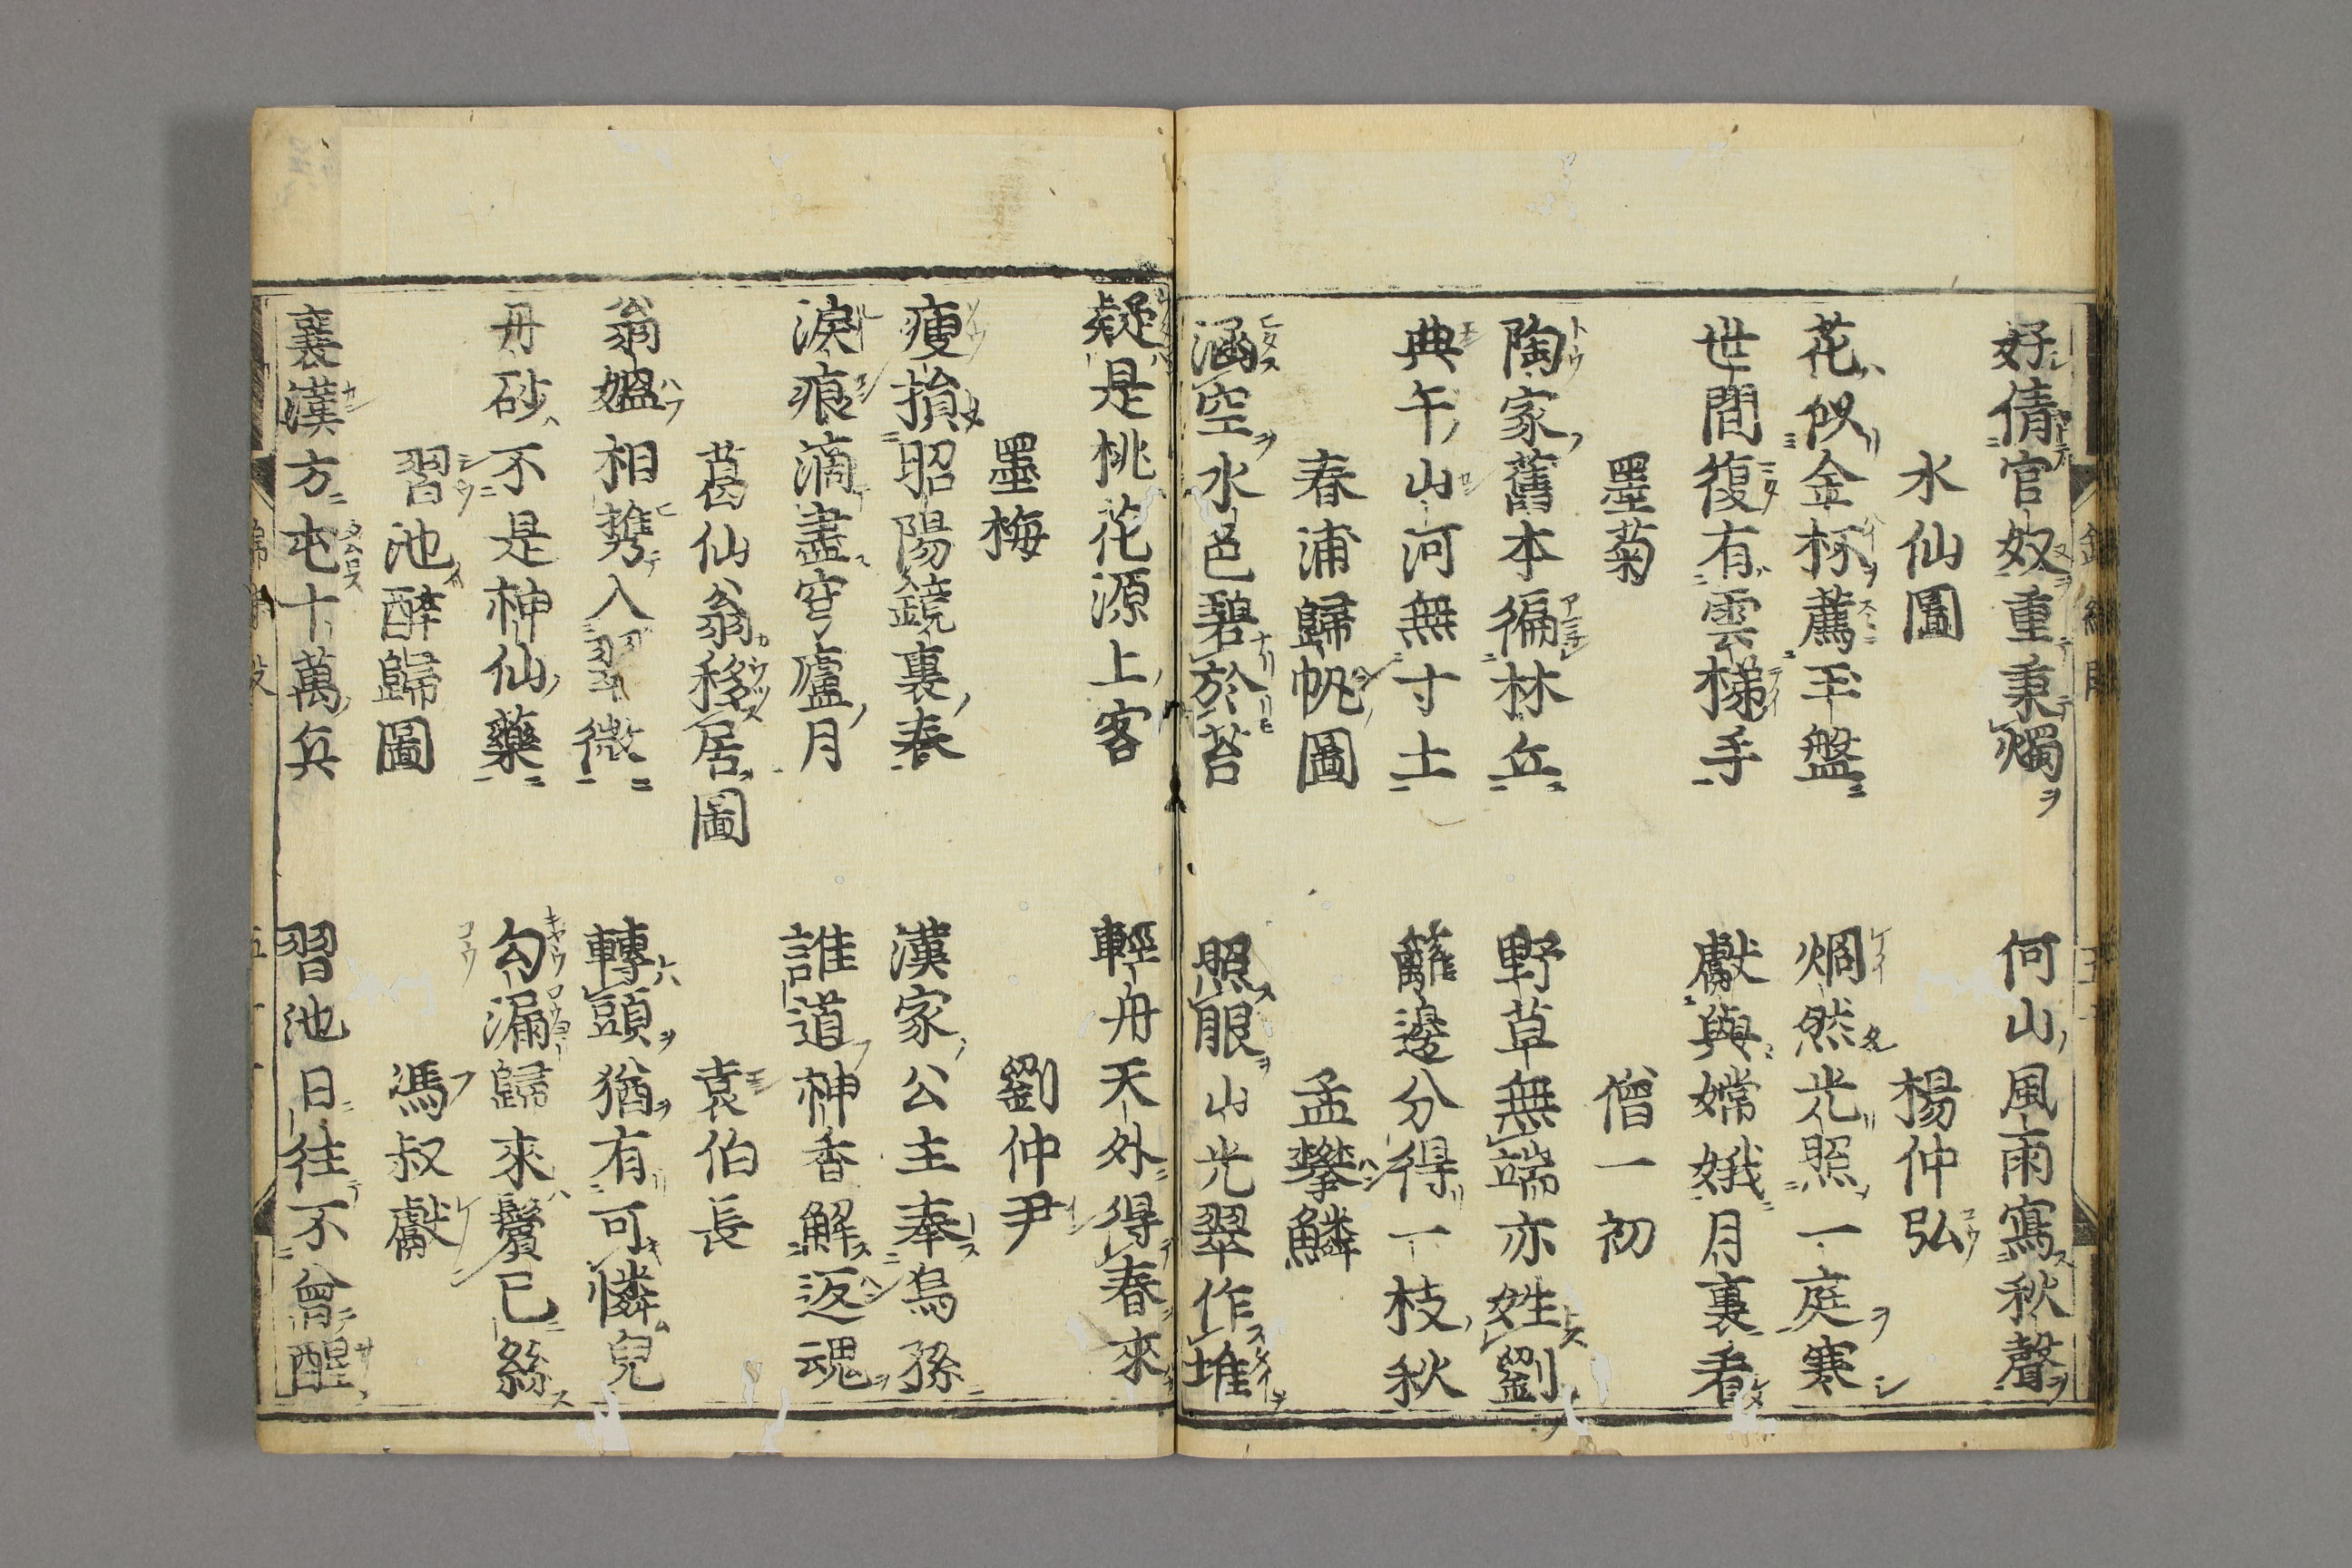 好倩官奴重秉燭　何山風雨寫秋聲
水仙圖　楊仲弘
花似金杯薦玉盤　烱然光照一庭寒
世間復有雲梯手　獻與嫦娥月裏看
墨菊　僧一初
陶家舊本徧林丘　野草無端亦姓劉
典午山河無寸土　籬邊分得一枝秋
春浦歸帆圖　孟攀鱗
涵空水色碧於苔　照眼山光翠作堆
疑是桃花源上客　輕舟天外得春來
墨梅　劉仲尹
瘦損昭陽鏡裏春　漢家公主奉烏孫
淚痕滴盡穹廬月　誰道神香解返魂
葛仙翁移居圖　袁伯長
翁媼相携入翠微　轉頭猶有可憐兒
丹砂不是神仙藥　勾漏歸來鬢已絲
習池醉歸圖　馮叔獻
襄漢方屯十萬兵　習池日往不曾醒